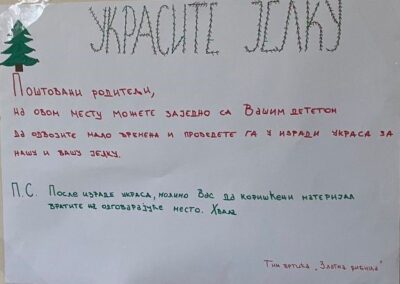 УКРАСИТЕ ЈЕЛКУ
Поштовани родитељи,
на овом месту можете заједно са Вашим дететом
да одвојите мало времена и проведете га у изради украса за
нашу и вашу јелку.
П.С. После израде украса, молимо Вас да коришћени материјал
вратите на одговарајуће место. Хвала
Тим вртића „Златна рибица"